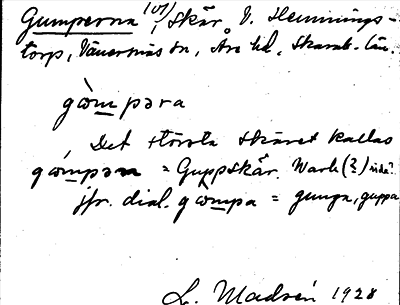 Gumperna (öl), skär V. Hemmings-
torp, Vänersnäs sn, Åse hd, Skarab. län.
gòmpəra
Det största skäret kallas
gómpən = Guppskär. Wark (?) sida?
jfr. dial. gòmpa = gunga, guppa
L. Madsén 1928